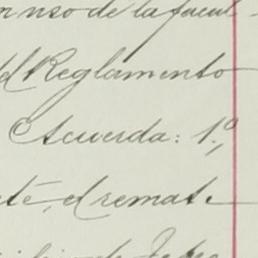 n uso de la facul-
el Reglamento
Acuerda: 1.º,
té, el remate